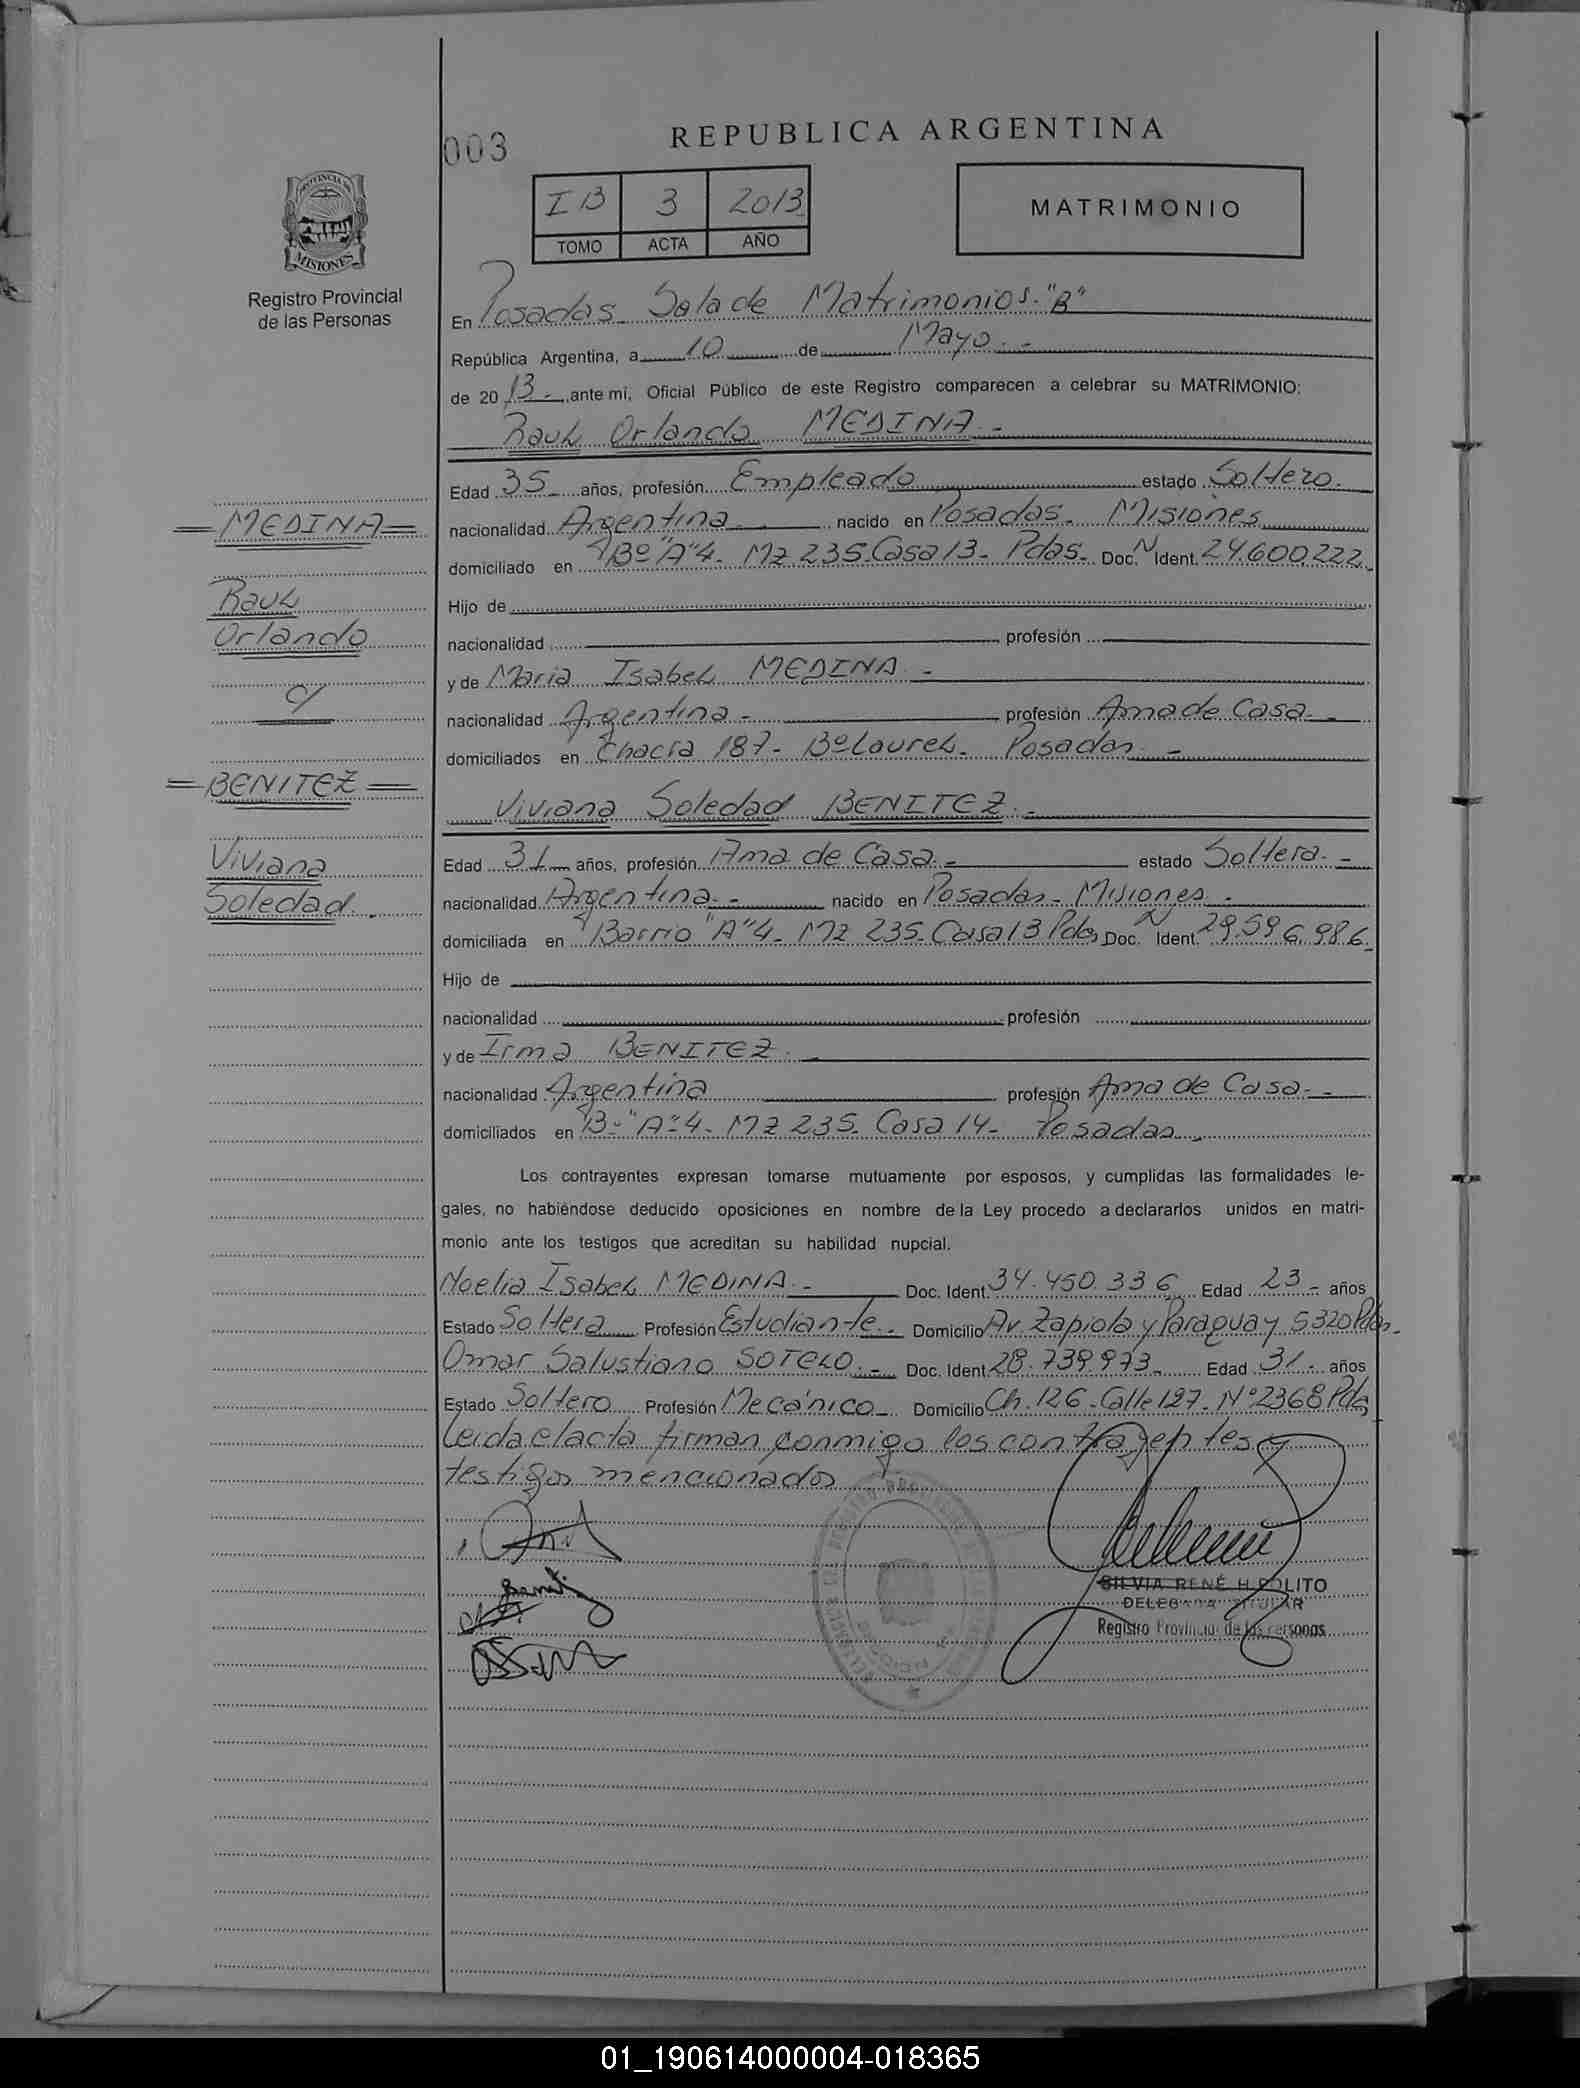 003
REPUBLICA ARGENTINA
PROVINCIA DE
MISIONES
Registro Provincial
de las Personas
I B 3 2013
TOMO ACTA AÑO
MATRIMONIO
En Posadas Sala de Matrimonios. "B"
República Argentina, a 10 de Mayo. -
de 20 13 - ante mi, Oficial Público de este Registro comparecen a celebrar su MATRIMONIO:
Raul Orlando MEDINA. -
Edad 35 años, profesión Empleado estado Soltero.
nacionalidad Argentina nacido en Posadas. Misiones
domiciliado en Bº "A"4- Mz 235-Casa 13- Pdas- Doc. N Ident. 24.600.222.
Hijo de
nacionalidad profesión
y de Maria Isabel MEDINA. -
nacionalidad Argentina - profesión Ama de Casa. -
domiciliados en Chacra 187- Bº Laurel- Posadas. -
Viviana Soledad BENITEZ. -
Edad 31 años, profesión Ama de Casa. - estado Soltera. -
nacionalidad Argentina. - nacido en Posadas- Misiones. -
domiciliada en Barrio "A"4- Mz 235- Casa 13 Pdas Doc. N Ident. 29.596.986.
Hijo de
nacionalidad profesión
y de Irma BENITEZ. -
nacionalidad Argentina profesión Ama de Casa. -
domiciliados en Bº "A"4- Mz 235- Casa 14- Posadas. -
Los contrayentes expresan tomarse mutuamente por esposos, y cumplidas las formalidades le-
gales, no habiéndose deducido oposiciones en nombre de la Ley procedo a declararlos unidos en matri-
monio ante los testigos que acreditan su habilidad nupcial.
Noelia Isabel MEDINA. - Doc. Ident 34.450.336 Edad 23 - años
Estado Soltera Profesión Estudiante. - Domicilio Av. Zapiola y Paraguay 5320 Pdas.
Omar Salustiano SOTELO. - Doc. Ident 28.739.973- Edad 31 - años
Estado Soltero Profesión Mecánico - Domicilio Ch. 126 - Calle 127- Nº 2368 Pdas
Leida el acta firman conmigo los contrayentes y
testigos mencionados
SILVIA RENÉ H POLITO
DELEGADA TITULAR
Registro Provincial de las Personas
= MEDINA =
Raul
Orlando
c/
= BENITEZ =
Viviana
Soledad. -
01_190614000004-018365